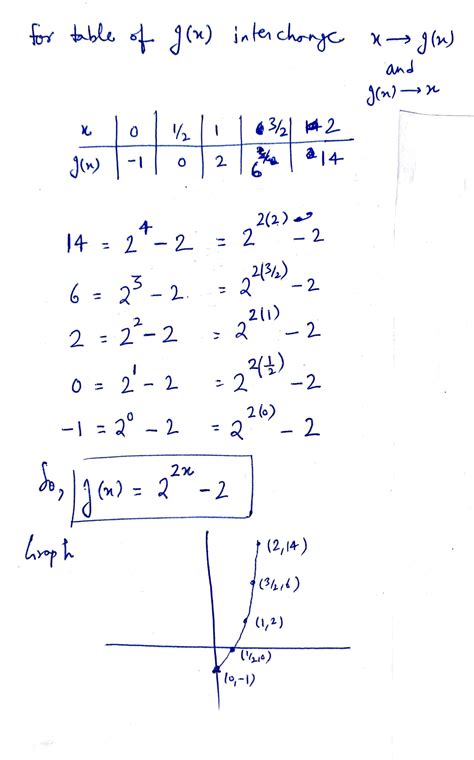 for table of g(x) interchange x → g(x)
and
g(x) → x
x | 0 | 1/2 | 1 | 3/2 | 2
g(x) | -1 | 0 | 2 | 6 | 14
14 = 2^4 - 2 = 2^{2(2)} - 2
6 = 2^3 - 2 = 2^{2(3/2)} - 2
2 = 2^2 - 2 = 2^{2(1)} - 2
0 = 2^1 - 2 = 2^{2(1/2)} - 2
-1 = 2^0 - 2 = 2^{2(0)} - 2
So, g(x) = 2^{2x} - 2
Graph
(2, 14)
(3/2, 6)
(1, 2)
(1/2, 0)
(0, -1)